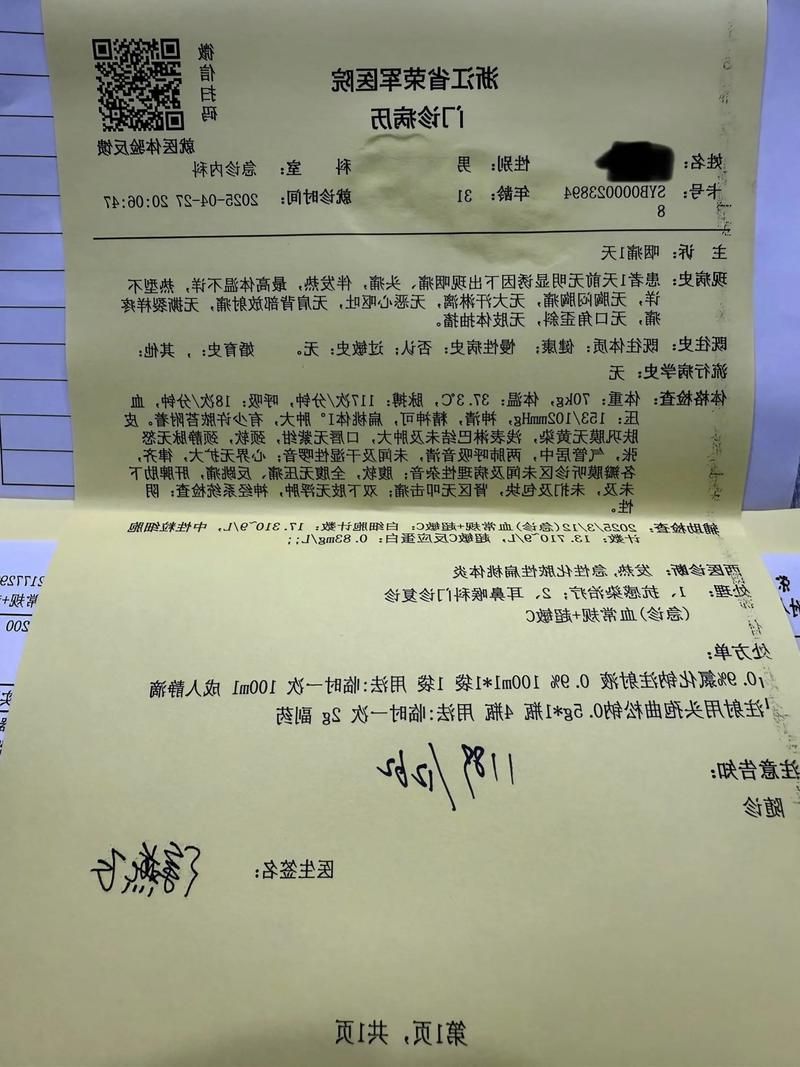 浙江省荣军医院
门诊病历
微信扫码
就医体验反馈
姓名: 性别: 男 科 室: 急诊内科
卡号: SYB000023894 年龄: 31 就诊时间: 2025-04-27 20:06:47
8
主 诉: 咽痛1天
现病史: 患者1天前无明显诱因下出现咽痛、头痛, 伴发热, 最高体温不详, 热型不
详, 无胸闷胸痛, 无大汗淋漓, 无恶心呕吐, 无肩背部放射痛, 无撕裂样疼
痛, 无口角歪斜, 无肢体抽搐。
既往史: 既往体质: 健康; 慢性病史: 否认; 过敏史: 无。 婚育史: , 其他:
流行病学史: 无
体格检查: 体重: 70kg, 体温: 37.3℃, 脉搏: 117次/分钟, 呼吸: 18次/分钟, 血
压: 153/102mmHg, 神清, 精神可, 扁桃体I°肿大, 有少许脓苔附着。皮
肤巩膜无黄染, 浅表淋巴结未及肿大, 口唇无紫绀, 颈软, 颈静脉无怒
张, 气管居中, 两肺呼吸音清, 未闻及干湿性啰音; 心界无扩大, 律齐,
各瓣膜听诊区未闻及病理性杂音; 腹软, 全腹无压痛、反跳痛, 肝脾肋下
未及, 未扪及包块, 肾区无叩击痛; 双下肢无浮肿, 神经系统检查: 阴
性。
辅助检查: 2025/3/12(急诊)血常规+超敏C: 白细胞计数: 17.310~9/L, 中性粒细胞
计数: 13.710~9/L, 超敏C反应蛋白: 0.83mg/L;;
西医诊断: 发热, 急性化脓性扁桃体炎
处理: 1、抗感染治疗; 2、耳鼻喉科门诊复诊
(急诊)血常规+超敏C
处方单:
0.9%氯化钠注射液 0.9% 100ml*1袋 1袋 用法:临时一次 100ml 成人静滴
注射用头孢曲松钠0.5g*1瓶 4瓶 用法:临时一次 2g 副药
118/
注意告知:
随诊
医生签名:
第1页, 共1页
2177295
常规+
200